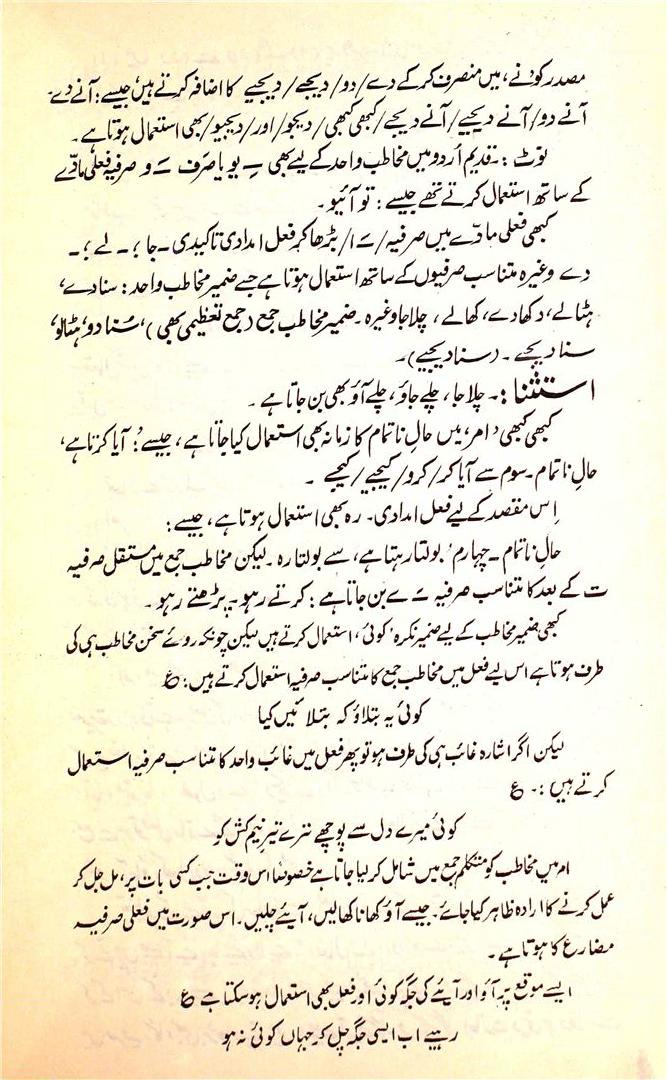 مصدر کو ’نے‘، میں منصرف کر کے دے/دو/دیجے/دیجیے کا اضافہ کرتے ہیں، جیسے: آنے دے۔
آنے دو/آنے دیجیے/آنے دیجے/کبھی کبھی/دیجو/اور/دیجیو/بھی استعمال ہوتا ہے۔
نوٹ :۔ قدیم اُردو میں مخاطب واحد کے لیے بھی ـِ یو یا صرف ـَ و صرفیہ فعلی مادّے
کے ساتھ استعمال کرتے تھے جیسے : تو آئیو۔
کبھی فعلی مادّے میں صرفیہ/ـَ ا/بڑھا کر فعل امدادی تاکیدی۔ جا ؛ ۔ لے ؛ ۔
دے وغیرہ متناسب صرفیوں کے ساتھ استعمال ہوتا ہے جسے ضمیر مخاطب واحد : سنا دے،
ہٹا لے، دکھا دے، کھالے، چلا جا وغیرہ۔ ضمیر مخاطب جمع (جمع تعظیمی بھی)، سُنا دو، ہٹالو،
سنا دیجے۔ (سنا دیجیے)۔
استثنا :۔ چلا جا، چلے جاؤ، چلے آؤ بھی بن جاتا ہے۔
کبھی کبھی ’امر‘ میں حالِ ناتمام کا زمانہ بھی استعمال کیا جاتا ہے، جیسے: آیا کرتا ہے،
حالِ ناتمام۔ سوم سے آیا کر/کرو/کیجیے/کیجے۔
اِس مقصد کے لیے فعل امدادی۔ رہ بھی استعمال ہوتا ہے، جیسے :
حالِ ناتمام۔ چہارم ’بولتا رہتا ہے، سے بولتا رہ۔ لیکن مخاطب جمع میں مستقل صرفیہ
ت کے بعد کا متناسب صرفیہ ـَ ے بن جاتا ہے : کرتے رہو۔ پڑھتے رہو۔
کبھی ضمیر مخاطب کے لیے ضمیر نکرہ ’کوئی‘، استعمال کرتے ہیں لیکن چونکہ روئے سخن مخاطب ہی کی
طرف ہوتا ہے اس لیے فعل میں مخاطب جمع کا متناسب صرفیہ استعمال کرتے ہیں : ع
کوئی یہ بتلاؤ کہ بتلائیں کیا
لیکن اگر اشارہ غائب ہی کی طرف ہو تو پھر فعل میں غائب واحد کا متناسب صرفیہ استعمال
کرتے ہیں :۔ ع
کوئی میرے دل سے پوچھے ترے تیرِ نیم کش کو
امر میں مخاطب کو متکلم جمع میں شامل کر لیا جاتا ہے خصوصاً اس وقت جب کسی بات پر، مل جل کر
عمل کرنے کا ارادہ ظاہر کیا جائے۔ جیسے آؤ کھانا کھالیں، آیئے چلیں۔ اس صورت میں فعلی صرفیہ
مضارع کا ہوتا ہے۔
ایسے موقع پر آؤ اور آیئے کی جگہ کوئی اور فعل بھی استعمال ہو سکتا ہے ع
رہیے اب ایسی جگہ چل کر جہاں کوئی نہ ہو